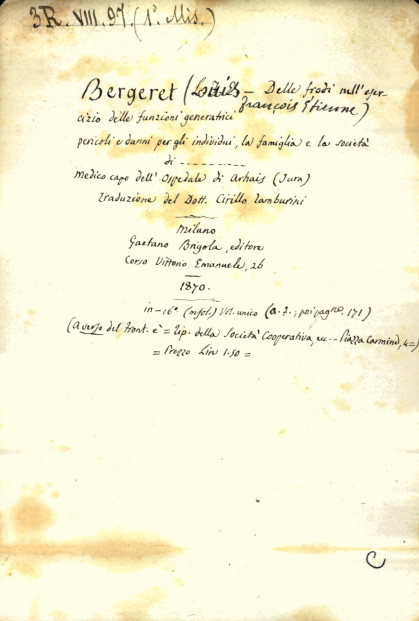 3R. VIII. 97. (1ª Mis.)
Bergeret (Louis — Delle frodi nell'eser-
François Etienne)
cizio delle funzioni generatrici
pericoli e danni per gli individui, la famiglia e la società
di ---------
medico capo dell'Ospedale di Arbais (Jura)
traduzione del Dott. Cirillo Tamburini
Milano
Gaetano Brigola, editore
Corso Vittorio Emanuele, 26
1870.
in-16º (infol.) Vol. unico (a. f., poi pagne. 171)
(a verso del front. è = Tip. della Società Cooperativa, ec. - Piazza Carmine, 4=)
= Prezzo Lire 1.50 =
C